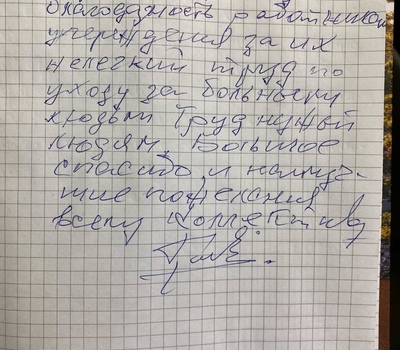 благодарность работникам
учереждения за их
нелегкий труд по
уходу за больными
людьми Труд нужный
людям. Большое
спасибо и наилуч-
шие пожелания
всему коллективу